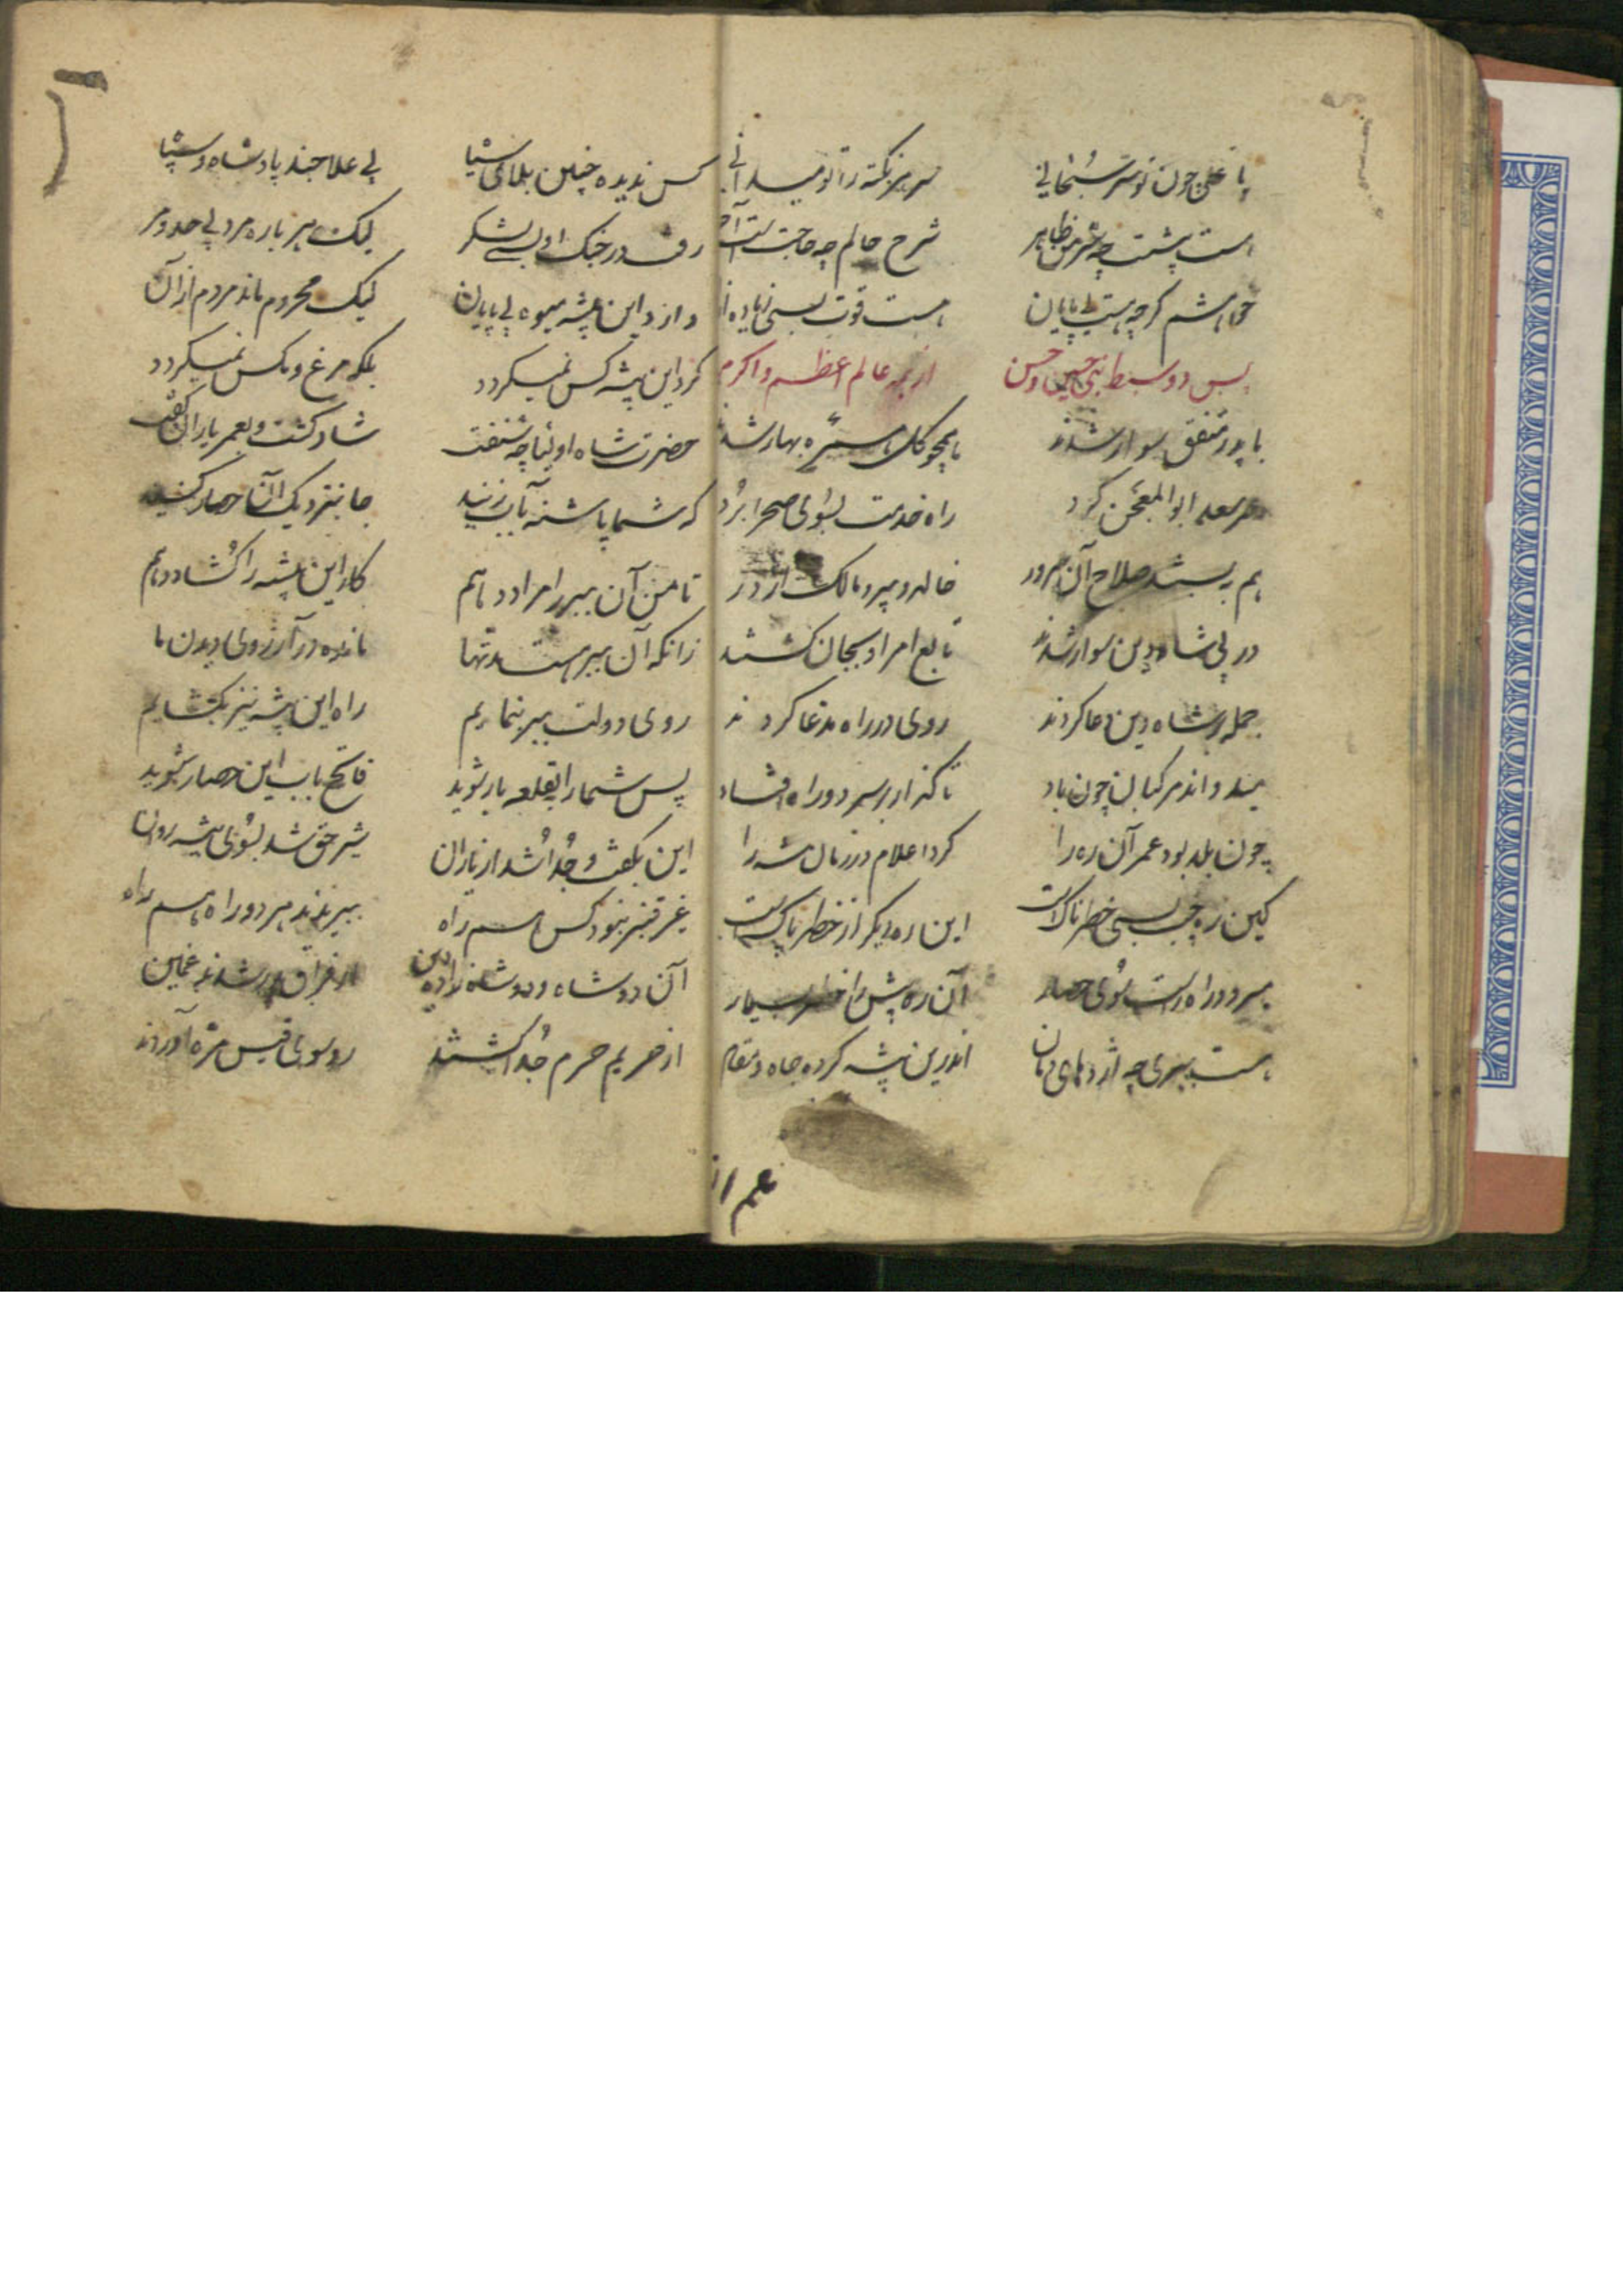 یا علی چون تو سرّ سبحانی سر هر نکته را تو میدانی
است پیشت چه شرمن ظاهر شرح حالم چه حاجت است آخر
خواهشم گرچه هست بی پایان هست قوت بسی زیاده از
پس دو سبط نبی حسین و حسن از همه عالم اعظم و اکرم
با پدر متفق سوار شدند همچو گل سبزه بهار شدند
سعد ابوالمعجن کرد راه خدمت بسوی صحرا برد
هم به بستند سلاح آن سرور خالد و میر و مالک اژدر
در پی شاه دین سوار شدند تابع امر او بجان گشتند
جمله بر شاه دین دعا کردند روی در راه مدعا کردند
میدواند مرکبان چون باد تا گذار بر سر دو راه افتاد
چون بلد بود عمر آن ره را کرد اعلام در زمان شه را
کین ره چپ بسی خطرناک است این ره دیگر از خطر پاک است
سر دو راه است سوی حصار آن ره پیش را خطر بسیار
هست ببری چه اژدهای دمان اندرین بیشه کرده جاه و مقام
عمر از
کس ندیده چنین بلای سیا بی علاجند پادشاه و سپا
رفت در جنگ او بسی لشکر لیک هر باره مرد بی حد و مر
دارد این بیشه میوه بی پایان لیک محروم ماند مردم از آن
گرد این بیشه کس نمیگردد بلکه مرغ و مگس نمیگردد
حضرت شاه اولیا چه شنفت شاد گشت و بعمر یاران گفت
که شما پاشنه بآب زنید جا بنزدیک آن حصار کنید
تا من آن ببر را مراد دهم کار این بیشه را کشاد دهم
زانکه آن ببر هست تنها مانده در آرزوی دیدن ما
روی دولت ببر بنمایم راه این بیشه نیز بکشایم
پس شما را بقلعه یار شوید فاتح باب این حصار شوید
این بگفت و جدا شد از یاران شیر حق شد بسوی بیشه روان
غیر قنبر نبود کس همراه ببریدند هر دو راه
آن دو شاه و دو شاهزاده دین از فراق پدر شدند غمین
از حریم حرم جدا گشتند رو سوی آوردند